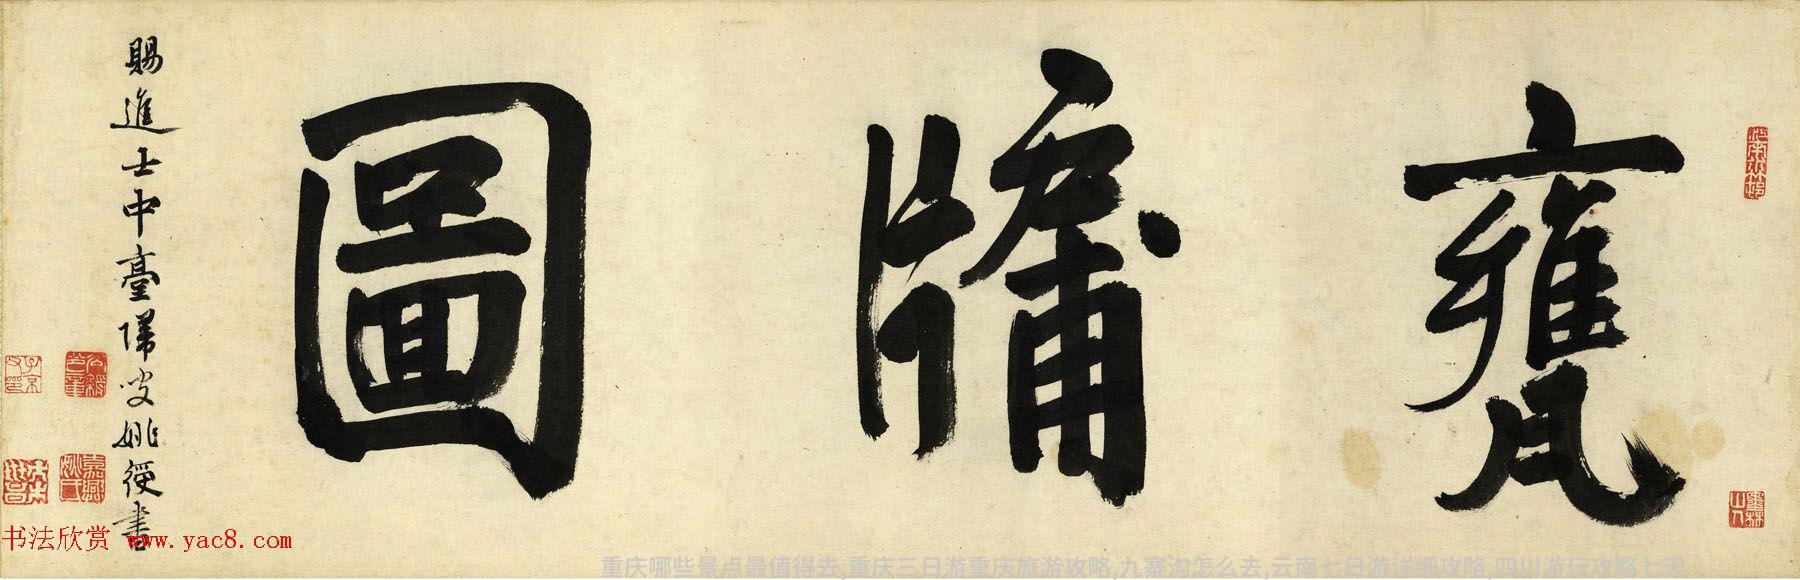 甕牖圖
賜進士中臺歸叟姚綬書
书法欣赏 www.yac8.com
重庆哪些景点最值得去,重庆三日游重庆旅游攻略,九寨沟怎么去,云南七日游详细攻略,四川游玩攻略七天